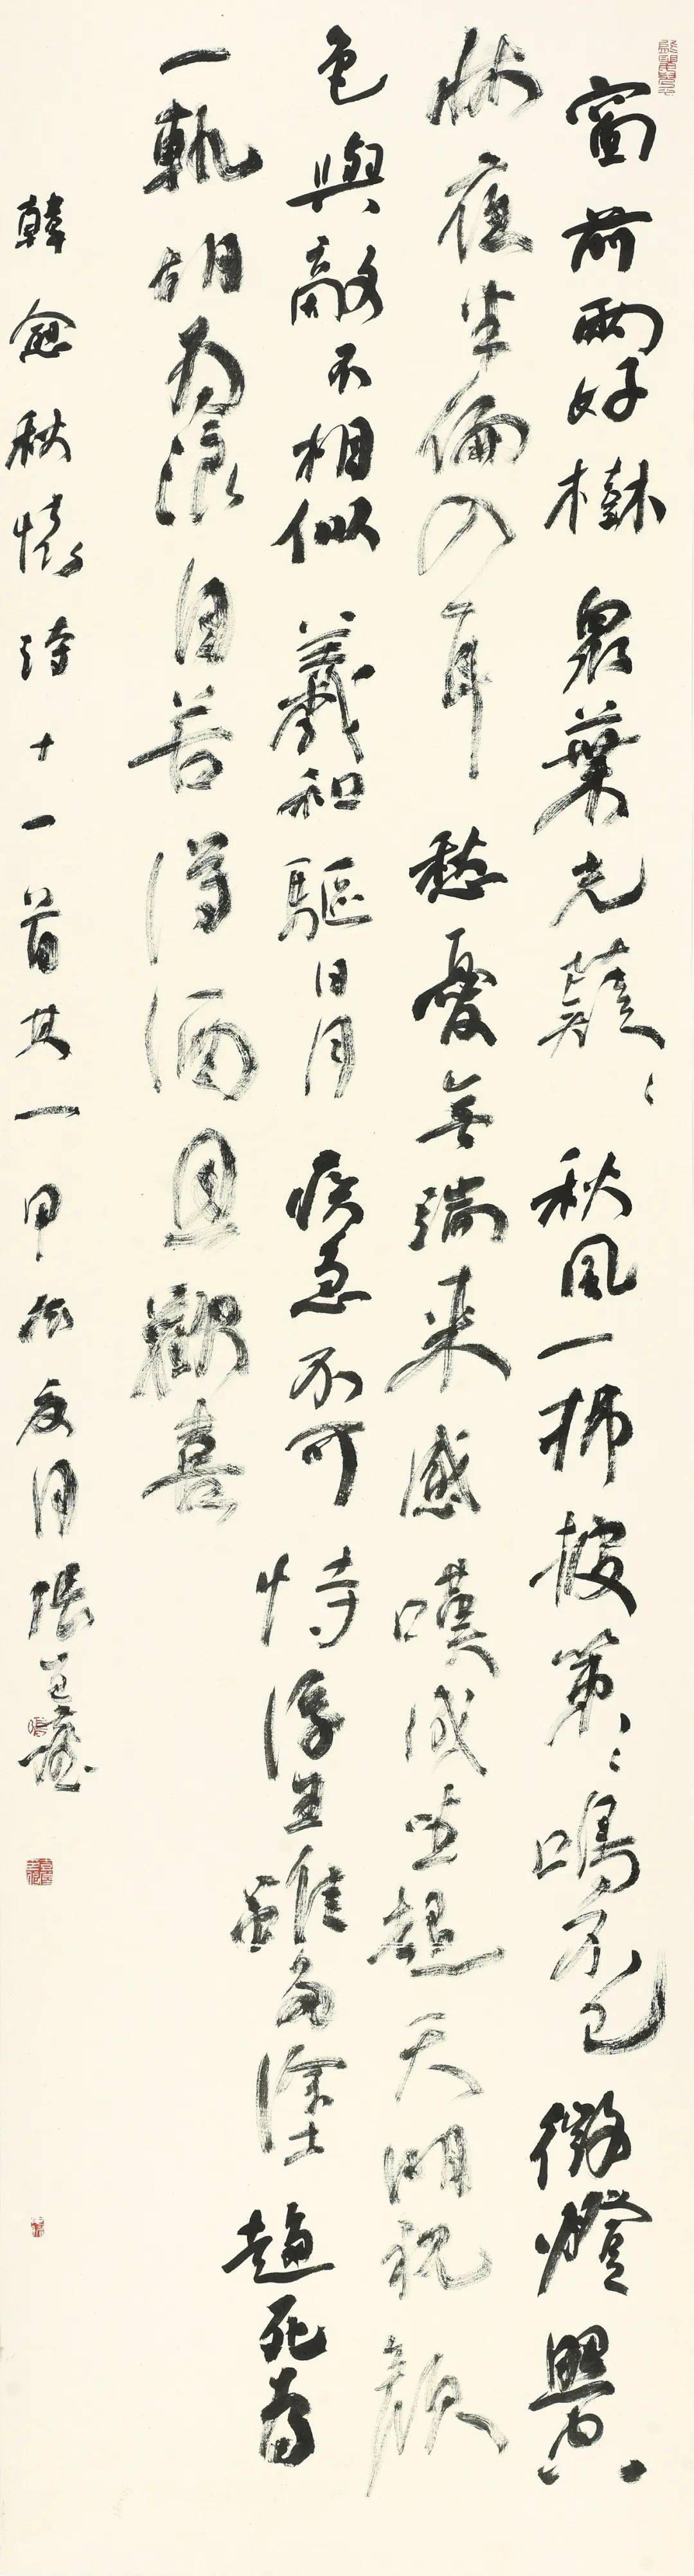 窗前兩好樹眾葉光薿〻秋風一拂披策〻鳴不已微燈照空
牀夜半偏入耳愁憂無端來感嘆成坐起天明視顏
色與故不相似羲和驅日月疾急不可恃浮生雖多塗趨死
一軌胡為浪自苦得酒且歡喜
韓愈秋懷詩十一首其一甲辰夏月張